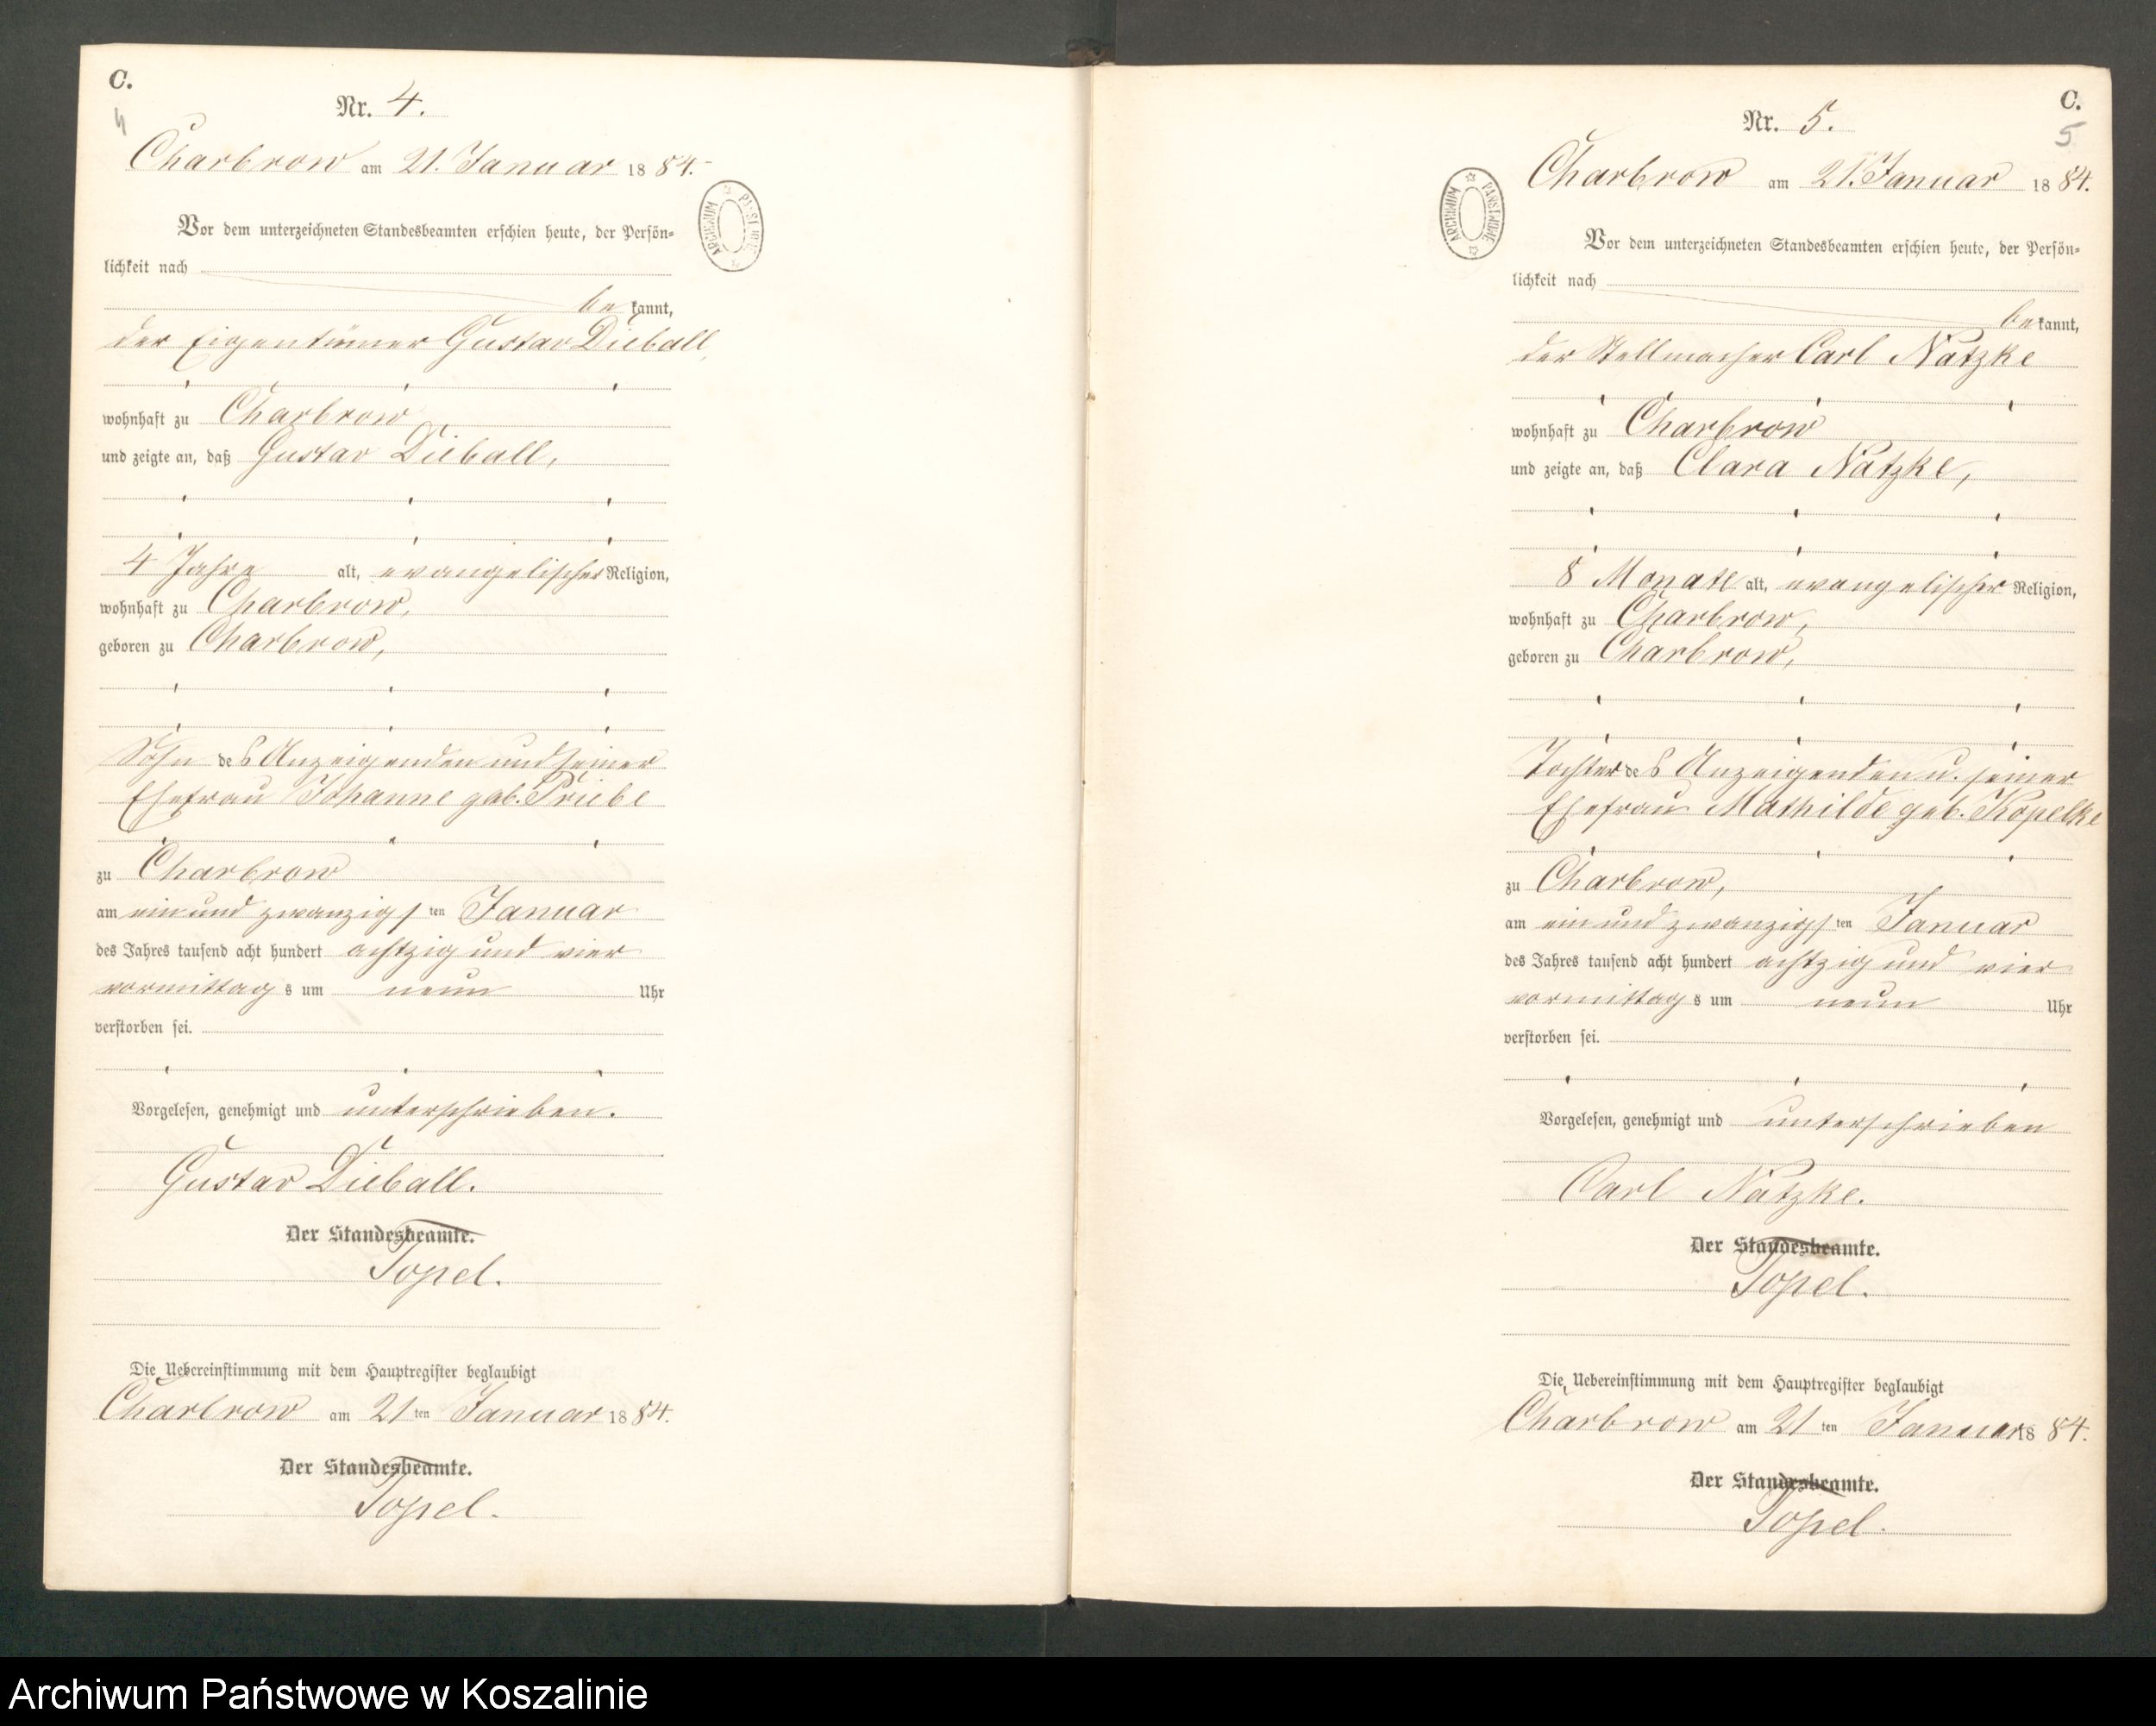 C.
4
Nr. 4.
Charbrow am 21. Januar 1884.
ARCHIWUM PAŃSTWOWE
Vor dem unterzeichneten Standesbeamten erschien heute, der Persön-
lichkeit nach
bekannt,
der Eigentümer Gustav Dieball,
wohnhaft zu Charbrow
und zeigte an, daß Gustav Dieball,
4 Jahre alt, evangelischer Religion,
wohnhaft zu Charbrow,
geboren zu Charbrow,
Sohn des Anzeigenden und seiner
Ehefrau Johanne geb. Priebe
zu Charbrow
am ein und zwanzigsten Januar
des Jahres tausend acht hundert achtzig und vier
vormittags um neun Uhr
verstorben sei.
Vorgelesen, genehmigt und unterschrieben.
Gustav Dieball.
Der Standesbeamte.
Topel.
Die Uebereinstimmung mit dem Hauptregister beglaubigt
Charbrow am 21ten Januar 1884.
Der Standesbeamte.
Topel.
C.
5
Nr. 5.
Charbrow am 21. Januar 1884.
ARCHIWUM PAŃSTWOWE
Vor dem unterzeichneten Standesbeamten erschien heute, der Persön-
lichkeit nach
bekannt,
der Stellmacher Carl Natzke
wohnhaft zu Charbrow
und zeigte an, daß Clara Natzke,
8 Monate alt, evangelischer Religion,
wohnhaft zu Charbrow,
geboren zu Charbrow,
Tochter des Anzeigenden u. seiner
Ehefrau Mathilde geb. Kopelke
zu Charbrow,
am ein und zwanzigsten Januar
des Jahres tausend acht hundert achtzig und vier
vormittags um neun Uhr
verstorben sei.
Vorgelesen, genehmigt und unterschrieben
Carl Natzke.
Der Standesbeamte.
Topel.
Die Uebereinstimmung mit dem Hauptregister beglaubigt
Charbrow am 21ten Januar 1884.
Der Standesbeamte.
Topel.
Archiwum Państwowe w Koszalinie